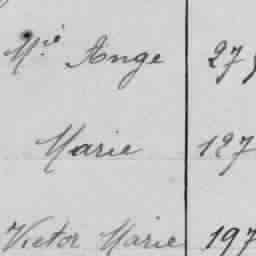 Mie Ange 27
Marie 127
Victor Marie 197